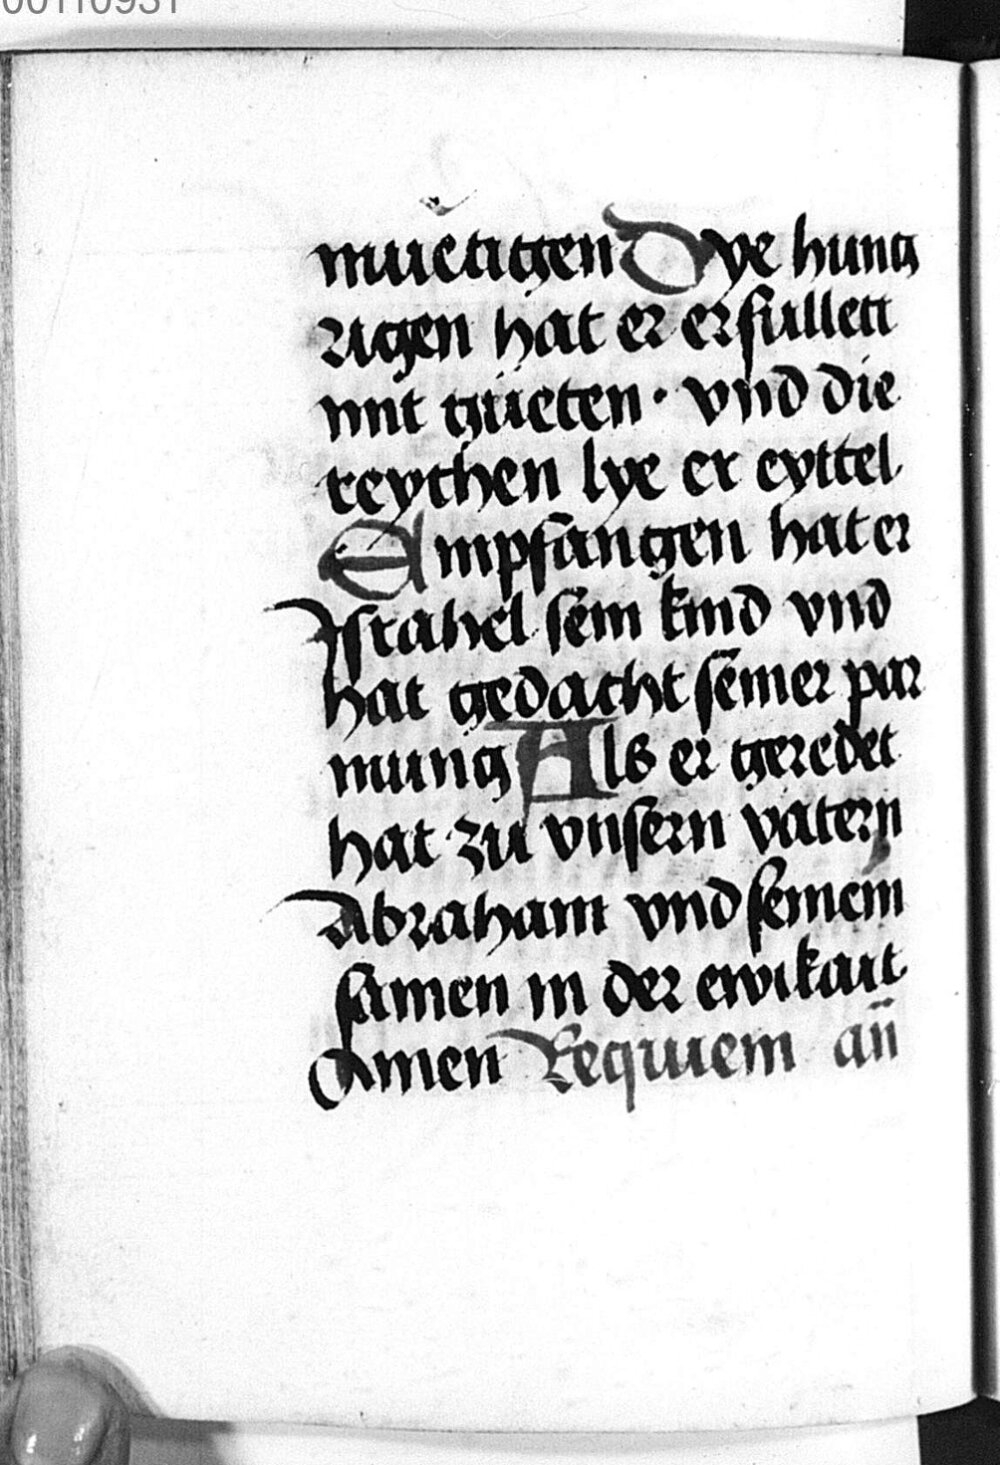 00110931
muetigen Dye hung
rigen hat er erfullett
mit gueten · vnd die
reychen lye er eyttel
Empfangen hat er
Jsrahel sein kind vnd
hat gedacht seiner par
mung Als er geredet
hat zu vnsern vatern
Abraham vnd seinem
samen in der ewikait
Amen Requiem an̄